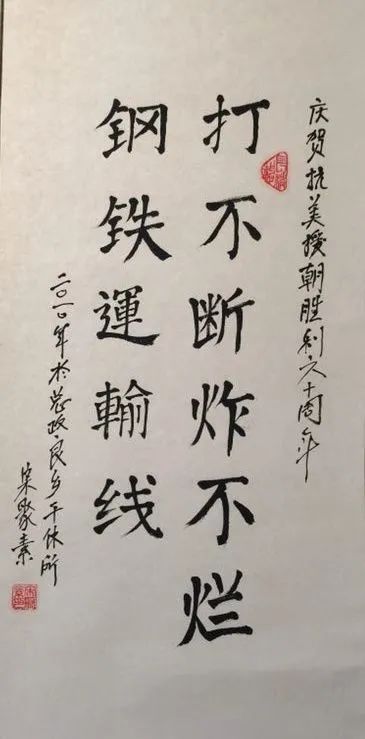 庆贺抗美援朝胜利六十周年
打不断炸不烂
钢铁運輸线
二〇一〇年於总政良乡干休所
宋聚素